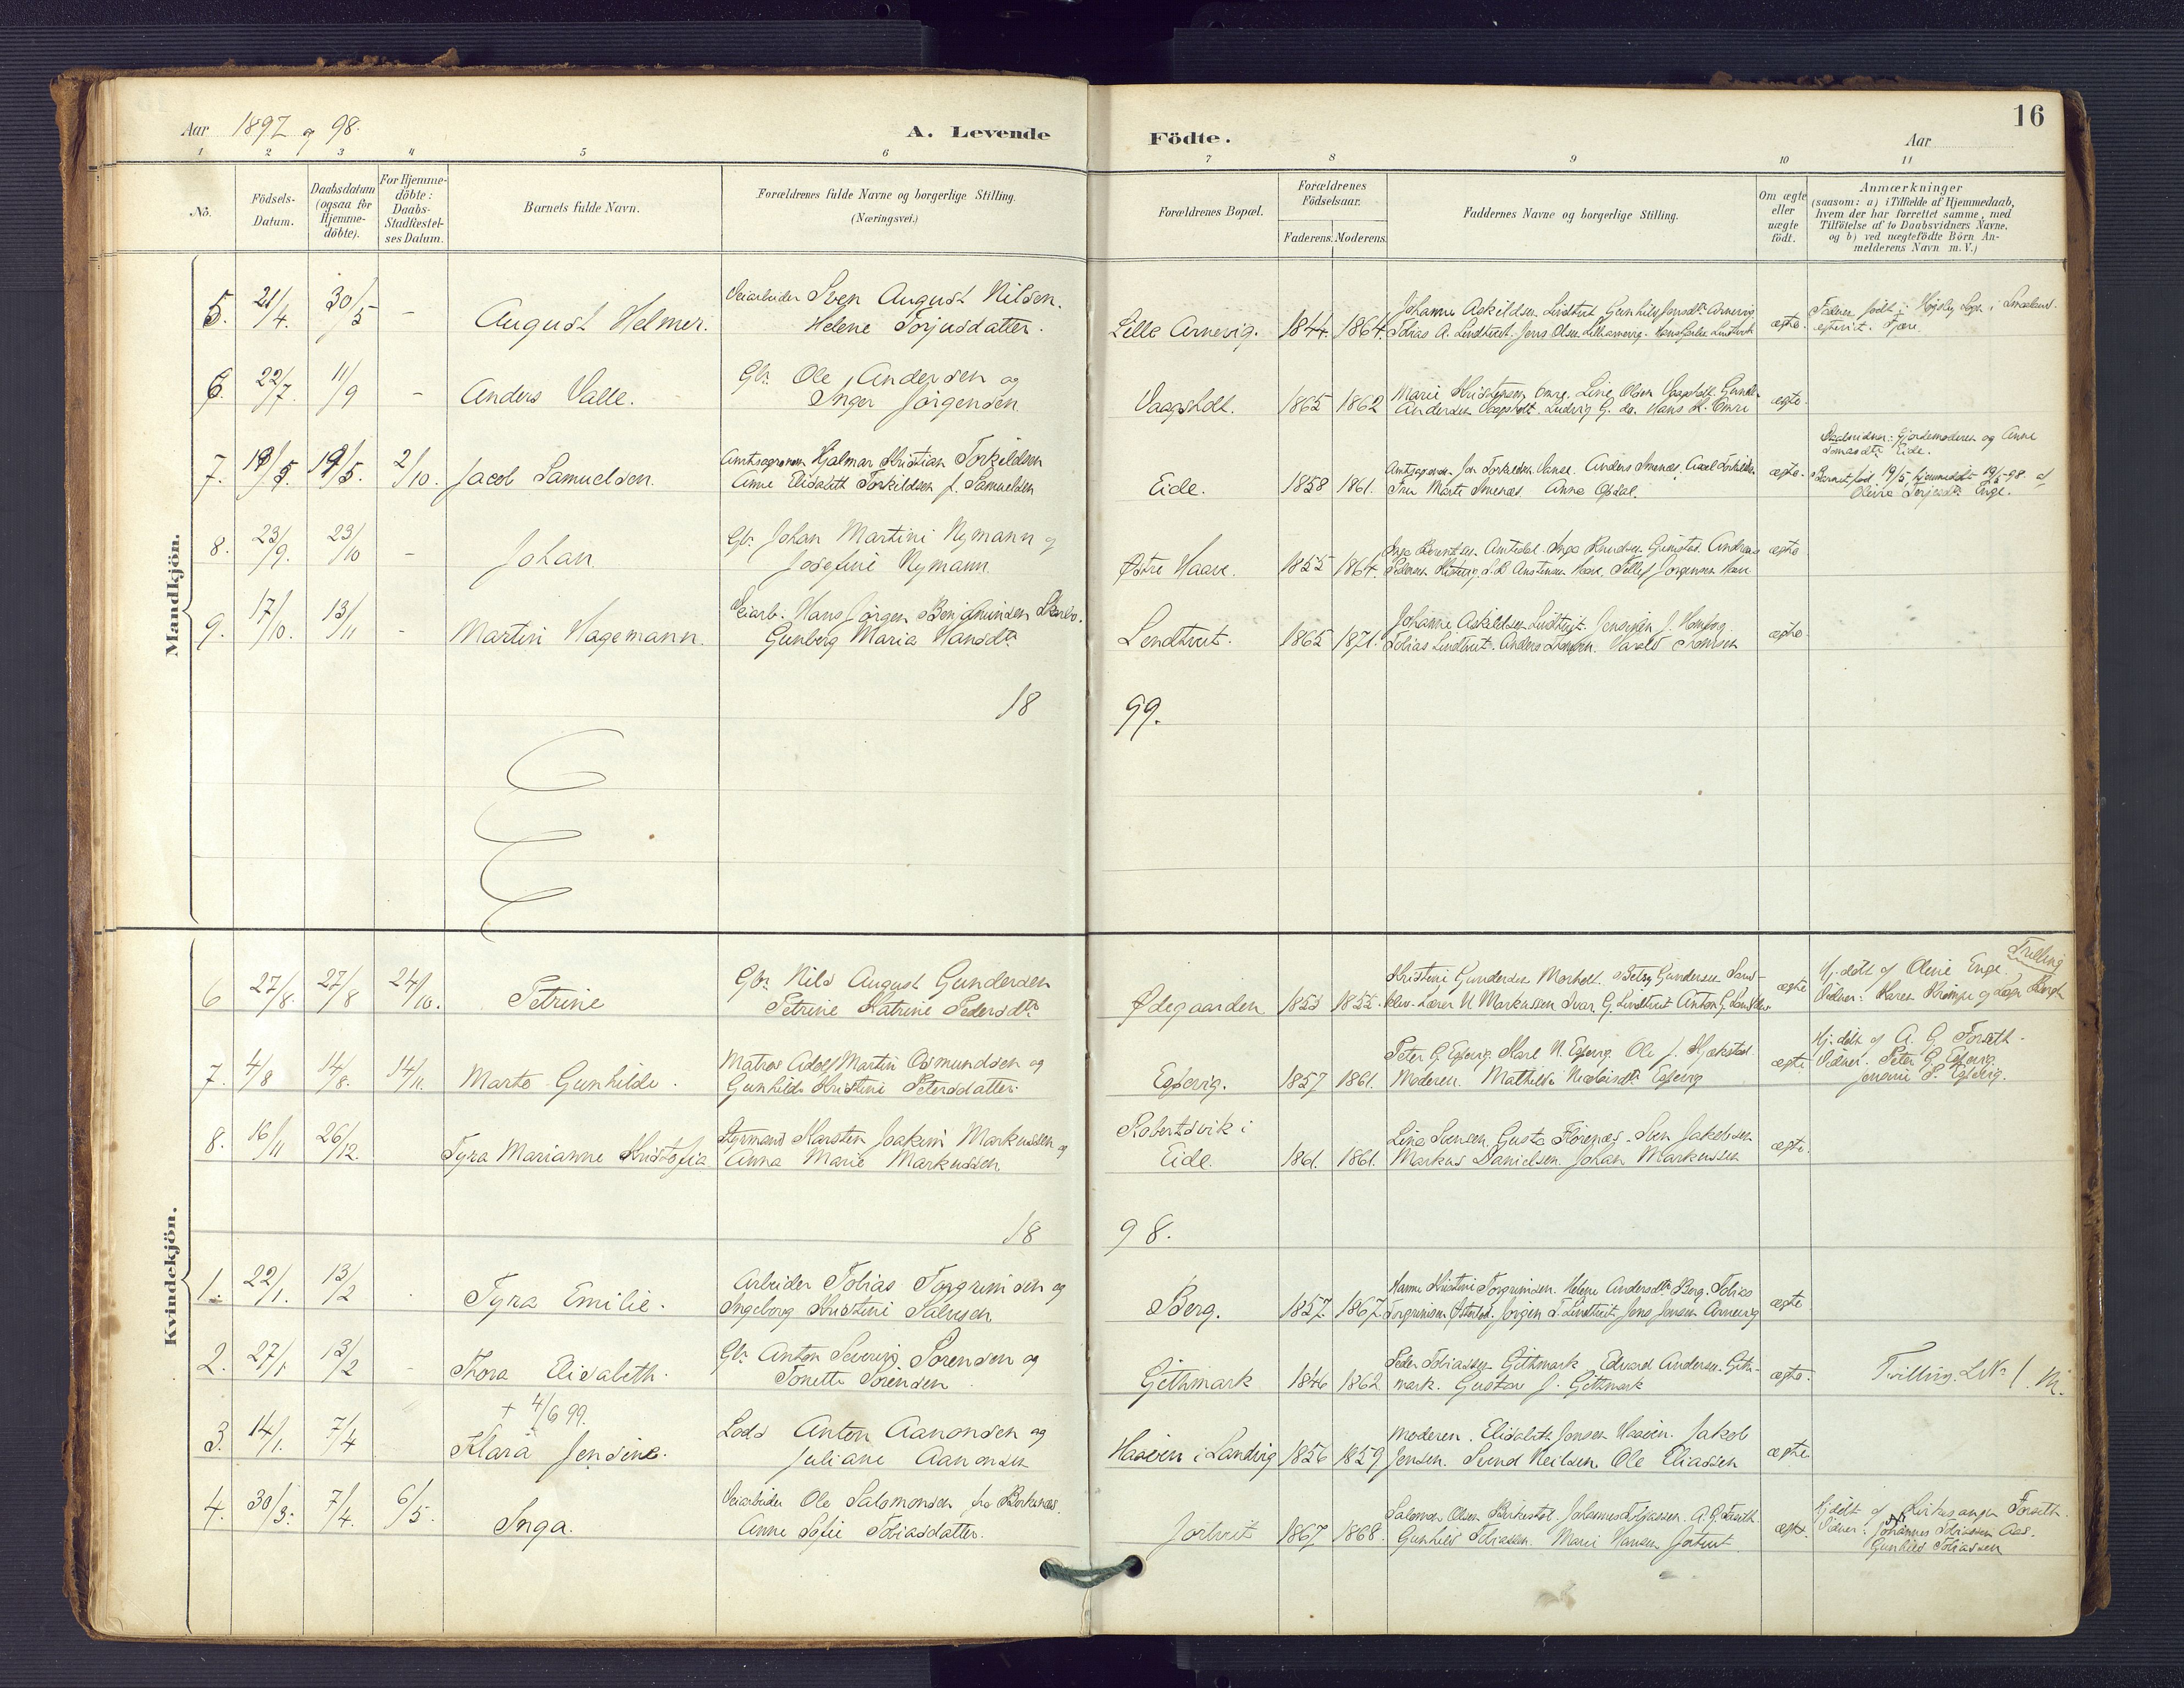 16
Aar 1897 og 98.
A. Levende Födte.
Aar
1 2 3 4 5 6 7 8 9 10 11
Nô.
Födsels-Datum.
Daabsdatum (ogsaa för Hjemme-döbte).
For Hjemme-döbte: Daabs-Stadfæstel-ses Datum.
Barnets fulde Navn.
Forældrenes fulde Navne og borgerlige Stilling. (Næringsvei.)
Forældrenes Bopæl.
Forældrenes Födselsaar.
Faderens. Moderens.
Faddernes Navne og borgerlige Stilling.
Om ægte eller uægte födt.
Anmærkninger
(saasom: a) i Tilfælde af Hjemmedaab,
hvem der har forrettet samme, med
Tilföielse af to Daabsvidners Navne,
og b) ved uægtefödte Börn An-
melderens Navn m.V.)
Mandkjön.
5. 21/4. 30/5 - August Helmer.
Veiarbeider Sven August Nilsen.
Helene Torjusdatter.
Lille Arnevig. 1844. 1864.
Johanne Askildsen Lindtveit Gunhild Jensdtr Arnevig
Tobias A. Lindtveit. Jens Olsen Lillearnevig.
ægte.
Fader født i Højsby Sogn i Smaaland.
6. 22/7. 11/9 - Anders Valle.
Gbr. Ole Andersen og
Inger Jørgensen
Vaagsholt. 1865 1862
Marie Kristensen Omre. Line Olsen Vaagsholt
Andersen Vaagsholt. Ludvig G. do. Hans K. Omre
ægte.
7. 19/5. 19/5. 2/10. Jacob Samuelsen.
Amtsagronom Hjalmar Kristian Torkildsen
Anne Elisabeth Torkildsen f. Samuelsen
Eide. 1858 1861.
Fru Marte Smenæs. Anna Opdal.
ægte.
Daabsvidner: Gjordemoderen og Anne
Tomasdtr Eide.
Barnet fød. 19/5, hjemmedøbt 19/5 98 af
Oline Terjesdtr Enge.
8. 23/9. 23/10 - Johan
Gbr. Johan Martini Nymann og
Josefine Nymann.
Østre Haave. 1855 1864.
Inga Berentsen Amtedal. Inga Knudsen Grimstad. Andreas
Pedersen. Tellef Jørgensen Haave
ægte
9. 17/10. 13/11 - Martin Hagemann.
Veiarb. Hans Jørgen Bengtsen
Gunborg Maria Hansdtr
Lendtveit. 1865 1871.
Johanne Askildsen Lindtveit.
Tobias Lindtveit.
ægte
18 99.
Kvindekjön.
6 27/8. 27/8 24/10. Petrine
Gbr. Nils August Gundersen
Petrine Katrine Pedersdtr
Ødegaarden 1853 1855.
Kristine Gundersen Morholt. Betzy Gundersen
Lærer N. Markussen Ivar G. Lindtveit Anton G.
ægte
Trilling
Hj. døbt af Oline Enge.
7. 4/8 14/8. 14/11. Marte Gunhilde.
Matros Adolf Martin Osmundsen og
Gunhilde Kristine Petersdatter.
Egsevig. 1857 1861.
Peter G. Egsevig. Karl N. Egsevig. Ole J.
Moderen. Mathilde
ægte
Hj. døbt af A. G. Forseth.
Vidner: Peter G. Egsevig
8. 16/11 26/12. Tyra Marianne Kristofia
Styrmand Karsten Joakim Markussen og
Anna Marie Markussen
Robertsvik i
Eide. 1861. 1861.
Lina Svensen. Gusta Florenæs. Sven Jakobsen
Markus Danielsen. Johan Markussen
ægte.
18 98.
1. 22/1. 13/2 Tyra Emilie.
Arbeider Tobias Torgrimsen og
Ingeborg Kristine Salvesen
Berg. 1857. 1867.
Hanne Kristine Torgrimsen. Helene Andersdtr Berg. Tobias
Torgrimsen. Jørgen T. Lindtveit. Jens Jensen Arnevig
ægte
2. 27/1 13/2 - Thora Elisabeth.
Gbr. Anton Severin Sørensen og
Tonette Sørensen.
Gjethmark 1846 1862
Peder Tobiassen Gjethmark Edvard Andersen Gjeth-
mark. Gustav J. Gjethmark
ægte.
Tvilling. L.Nr 1. M.
+ 4/6 99.
3. 14/1. 7/4 Klara Jensine.
Lods Anton Aanonsen og
Juliane Aanonsen
Haaven i Landvig 1856 1859
Moderen. Elisabeth Jensen Haaven. Jakob
Jensen. Svend Neilsen. Ole Eliassen
ægte
4. 30/3. 7/4. 6/5. Inga.
Veiarbeider Ole Salomonsen fra Birkenæs.
Anne Sofie Tobiasdatter.
Jortveit 1867. 1868.
Salomon Olsen Birkestøl. Johannes Tobiassen. A. G. Forseth
Gunhild Tobiassen. Marie Hansen Jortveit.
ægte.
Hj. døbt af Kirkesanger Forseth.
Vidner: Johannes Tobiassen Aas.
Gunhild Tobiassen